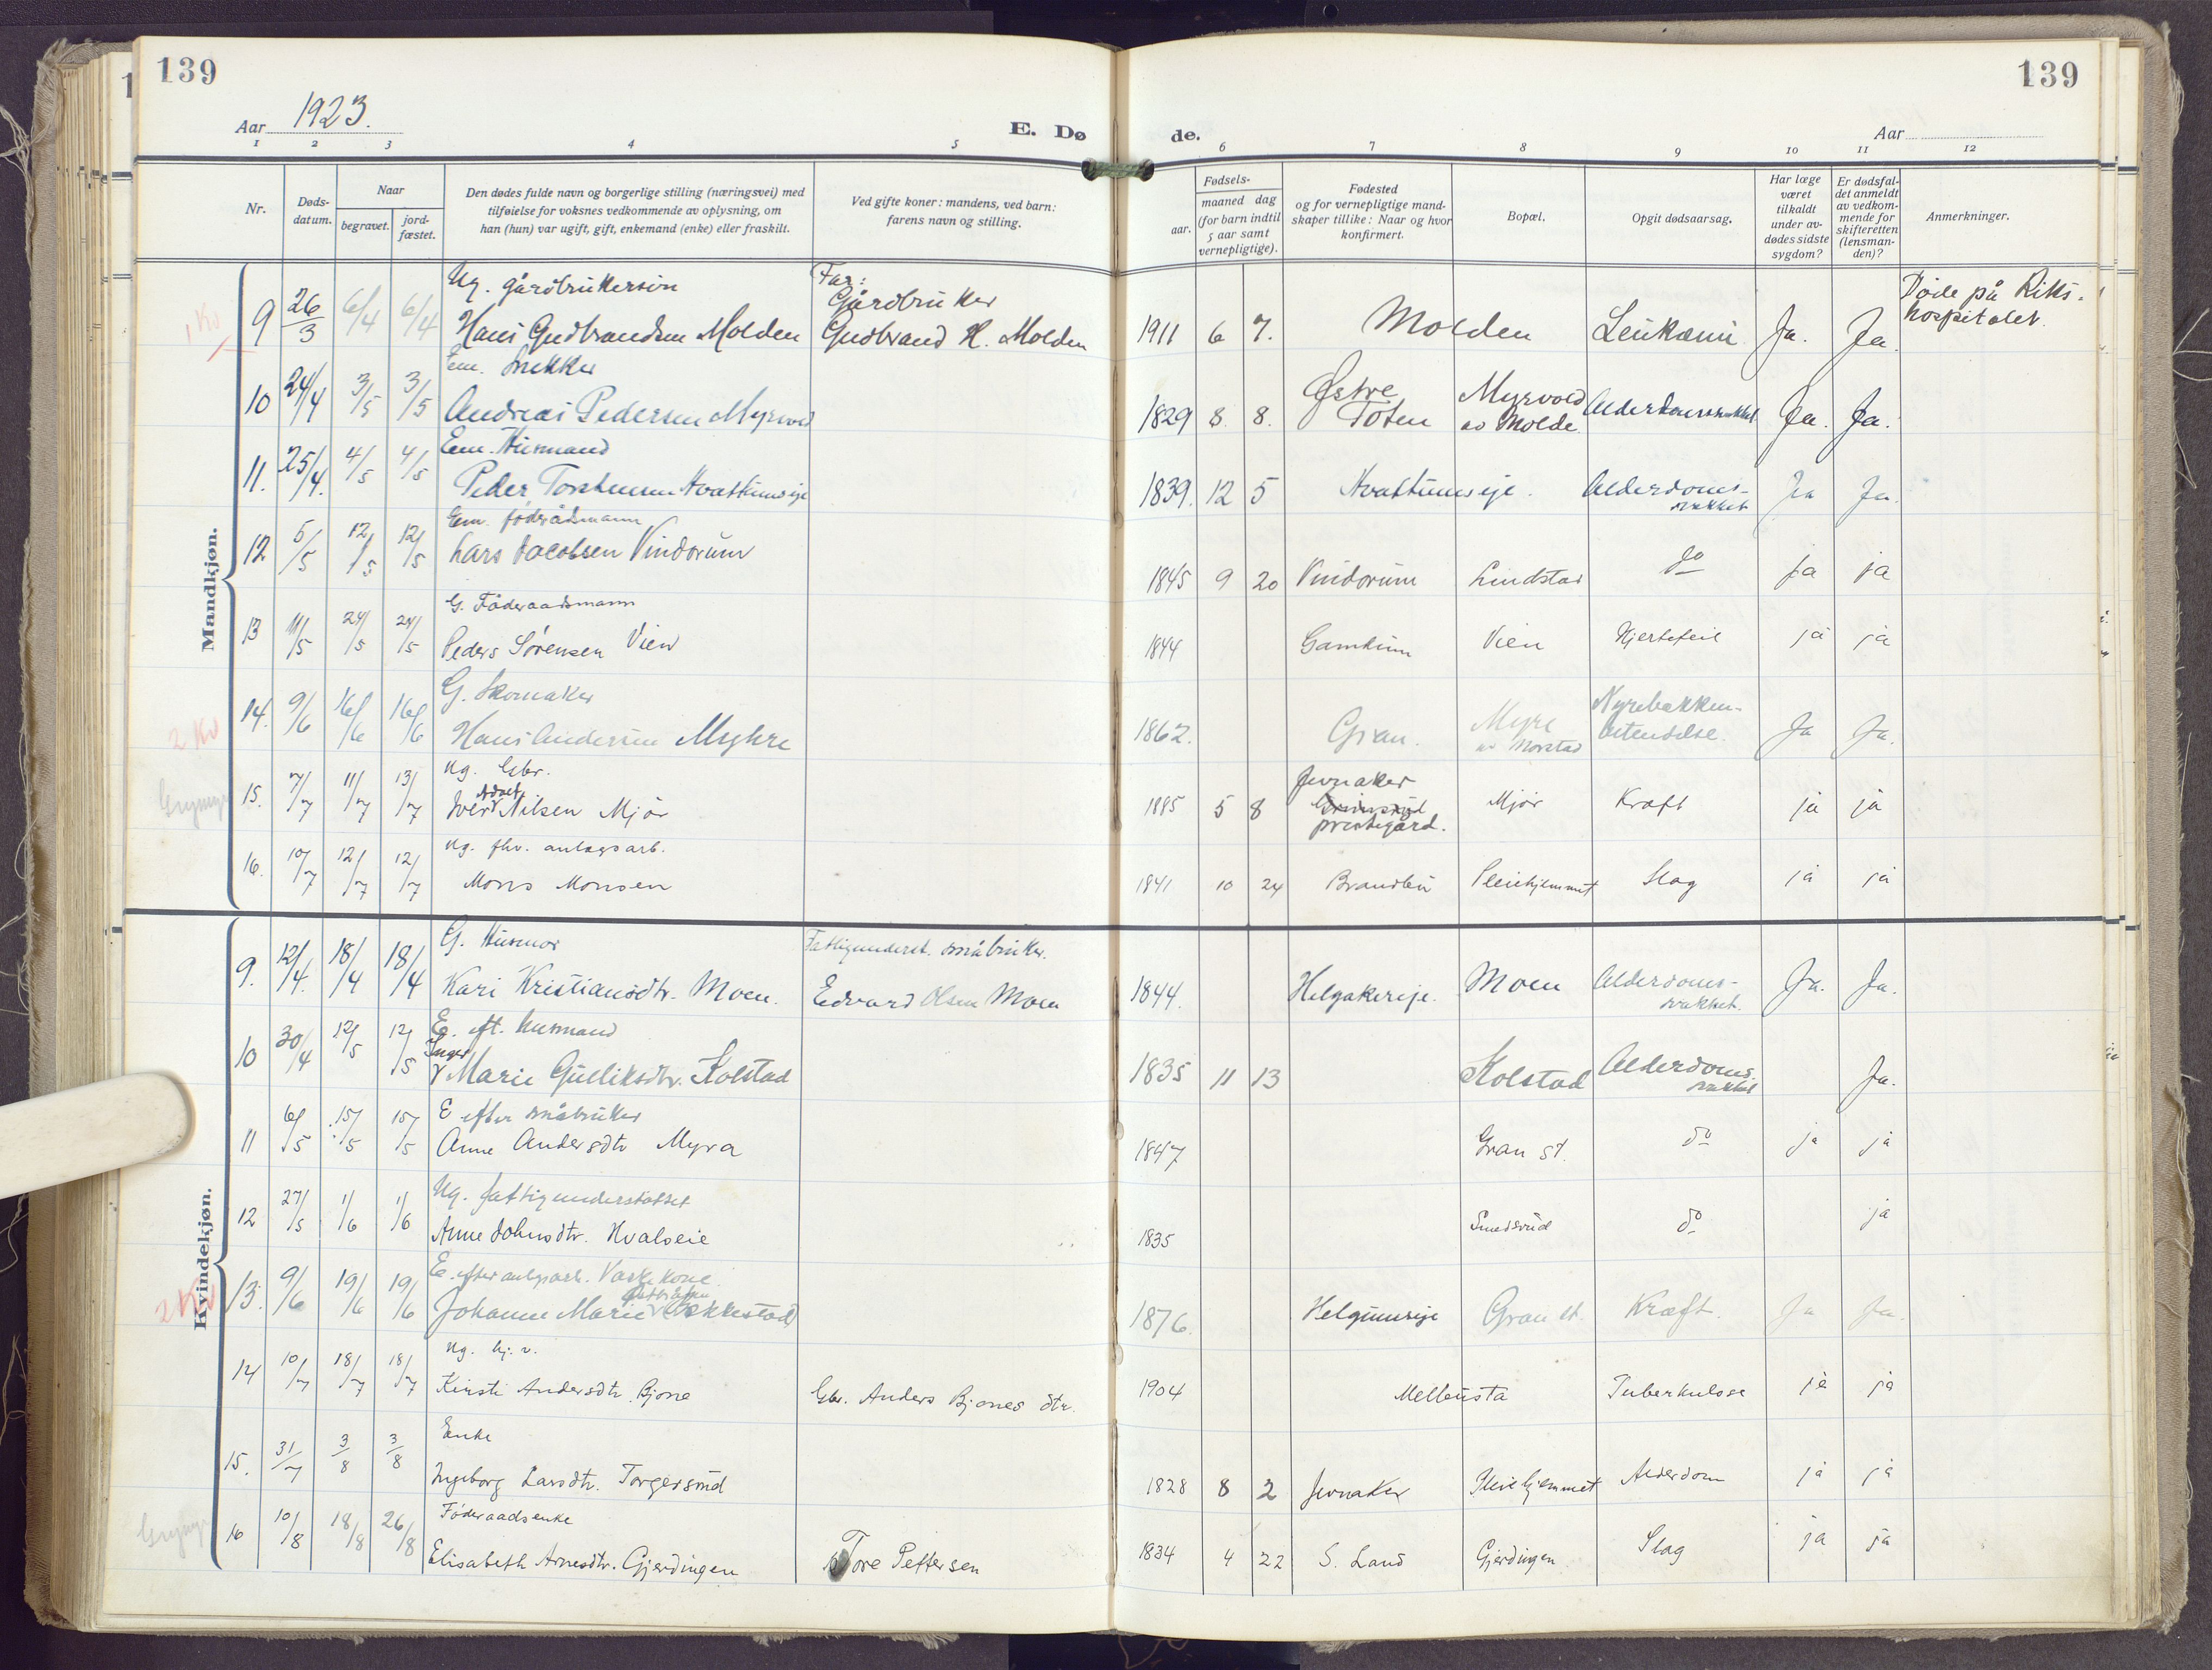 139
Aar 1923.
E. Dø
1 2 3 4 5
Nr.
Døds-
datum.
Naar
begravet.
jord-
fæstet.
Den dødes fulde navn og borgerlige stilling (næringsvei) med
tilføielse for voksnes vedkommende av oplysning, om
han (hun) var ugift, gift, enkemand (enke) eller fraskilt.
Ved gifte koner: mandens, ved barn:
farens navn og stilling.
139
de.
Aar
6 7 8 9 10 11 12
Fødsels-
aar.
maaned dag
(for barn indtil
5 aar samt
vernepligtige).
Fødested
og for vernepligtige mand-
skaper tillike: Naar og hvor
konfirmert.
Bopæl.
Opgit dødsaarsag.
Har læge
været
tilkaldt
under av-
dødes sidste
sygdom?
Er dødsfal-
det anmeldt
av vedkom-
mende for
skifteretten
(lensman-
den)?
Anmerkninger.
Mandkjøn.
1 Kv
Ug. gårdbrukersøn Far: Gårdbruker
9 26/3 6/4 6/4 Hans Gudbrandsen Molden Gudbrand H. Molden 1911 6 7. Molden Leukæmi Ja. Ja. Døde på Riks-
hospitalet.
Em. Snekker
10 24/4 3/5 3/5 Andreas Pedersen Myrvold 1829 8. 8. Østre Toten Myrvold av Molde Alderdomssvakhet Ja. Ja.
Em. Husmand
11. 25/4. 4/5 4/5 Peder Torstensen Hvattumseje 1839. 12 5 Hvattumseje. Alderdoms-
svakhet Ja Ja.
Em. føderådsmann
12 5/5 12/5 12/5 Lars Jacobsen Vindorum 1845 9 20 Vindorum Lindstad do ja ja
G. Føderaadsmann
13 11/5 24/5 24/5 Peders Sørensen Vien 1844 Gamkinn Vien Hjertefeil ja ja
G. Skomaker
2 Kv 14. 9/6 16/6 16/6 Hans Andersen Myhre 1862. Gran. Myre av Morstad Nyrebækken-
betendelse. Ja Ja.
Ug. Gbr.
Grymyr 15. 7/7 11/7 13/7 Iver Adolf Nilsen Mjør 1885 5 8 Jevnaker
prestegård. Mjør Kræft ja ja
Ug. fhv. anlægsarb.
16. 10/7 12/7 12/7 Mons Monsen 1841 10 24 Brandbu Pleiehjemmet Slag ja ja
Kvindekjøn.
G. Husmor Fattigunderst. småbruker.
9. 12/4. 18/4 18/4 Kari Kristiansdtr. Moen. Edvard Olsen Moen 1844. Helgakereje. Moen Alderdoms-
svakhet. Ja. Ja.
E. eft. husmand
10 30/4 12/5 12/5 Inger Marie Gulliksdtr. Kolstad 1835 11 13 Kolstad Alderdoms-
svakhet Ja.
E efter småbruker
11 6/5 15/5 15/5 Anne Andersdtr Myra 1847 Gran st. do ja ja
Ug. fattigunderstøttet
12 27/5 1/6 1/6 Anne Johnsdtr. Hvalseie 1835 Smedsrud do ja
E. efter anlgsarb. Vaskekone.
2 Kv 13. 9/6 19/6 19/6 Johanne Marie Økkestad 1876. Helgumseje Gran st. Kræft. Ja Ja.
Ug. hj. v.
14 10/7 18/7 18/7 Kirsti Andersdtr. Bjone Gbr. Anders Bjones dtr. 1904 Melbusta Tuberkulose ja ja
Enke
15. 31/7 3/8 3/8 Ingeborg Larsdtr. Torgersrud 1828 8 2 Jevnaker Pleiehjemmet Alderdom ja ja
Føderaadsenke
Grymyr 16 10/8 18/8 26/8 Elisabeth Arnesdtr. Gjerdingen Tore Pettersen 1834 4 22 S. Land Gjerdingen Slag ja ja